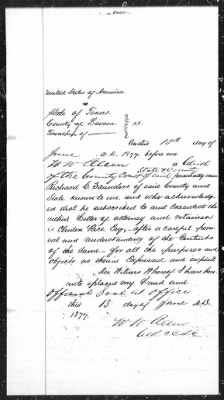 United States of America
State of Texas
County of Lavaca ss.
Township of
On this 13th day of
June A.D. 1899. before me
W W Allen a Clerk
of the County Court of said State & County personally came
Richard C. Saunders of said County and
State known to me and who acknowledg
ed that he subscribed to and executed the
within letter of attorney and
is Clinton Rice Esq, after a careful
and understanding of the Contents
of the same - for all the purposes and
objects as therein Expressed and
In Witness Whereof I have here
unto places my hand and
Official Seal at Office
this 13 day of June A.D.
1899.
W W Allen